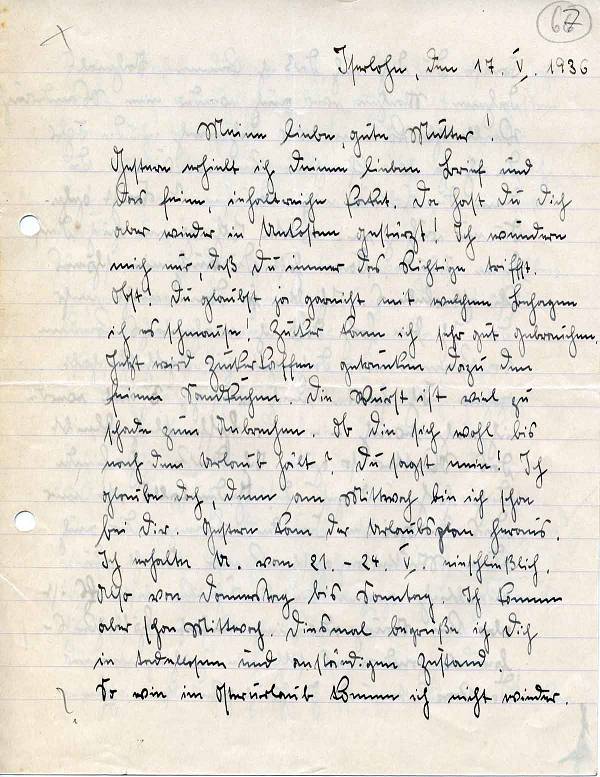 67
Iserlohn, den 17. V. 1936
Meine liebe, gute Mutter!
Gestern erhielt ich Deinen lieben Brief und
das feine inhaltreiche Paket. Da hast Du Dich
aber wieder in Unkosten gestürzt! Ich wundere
mich nur, daß Du immer das Richtige triffst.
Obst! Du glaubst ja garnicht mit welchem Behagen
ich es schmause! Zucker kann ich sehr gut gebrauchen.
Jetzt wird Zuckerkaffee getrunken dazu den
feinen Sandkuchen. Die Wurst ist viel zu
schade zum Anbrechen. Ob die sich wohl bis
nach dem Urlaub hält? Du sagst nein! Ich
glaube doch, denn am Mittwoch bin ich schon
bei Dir. Gestern kam der Urlaubsplan heraus.
Ich erhalte U. vom 21. – 24. V. einschließlich.
Also von Donnerstag bis Sonntag. Ich komme
aber schon Mittwoch. Diesmal begrüße ich Dich
in tadellosem und anständigen Zustand.
So wie im Osterurlaub komme ich nicht wieder.